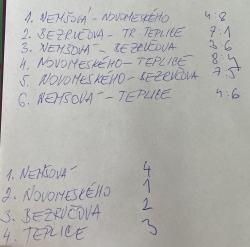 1. NEMŠOVÁ - NOVOMESKÉHO 4:8
2. BEZRUČOVA - TR. TEPLICE 7:1
3. NEMŠOVÁ - BEZRUČOVA 3:6
4. NOVOMESKÉHO - TEPLICE 8:4
5. NOVOMESKÉHO - BEZRUČOVA 7:5
6. NEMŠOVÁ - TEPLICE 4:6
1. NEMŠOVÁ 4
2. NOVOMESKÉHO 1
3. BEZRUČOVA 2
4. TEPLICE 3